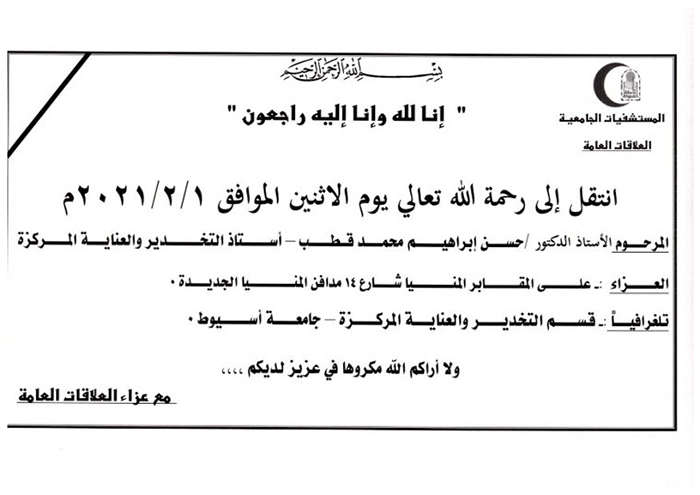 بسم الله الرحمن الرحيم
" إنا لله وإنا إليه راجعون "
المستشفيات الجامعية
العلاقات العامة
انتقل إلى رحمة الله تعالي يوم الاثنين الموافق ٢٠٢١/٢/١م
المرحوم الأستاذ الدكتور /حسن إبراهيم محمد قطب – أستاذ التخدير والعناية المركزة
العزاء :ـ على المقابر المنيا شارع ١٤ مدافن المنيا الجديدة ٠
تلغرافياً :ـ قسم التخدير والعناية المركزة – جامعة أسيوط ٠
ولا أراكم الله مكروها في عزيز لديكم ,,,,
مع عزاء العلاقات العامة